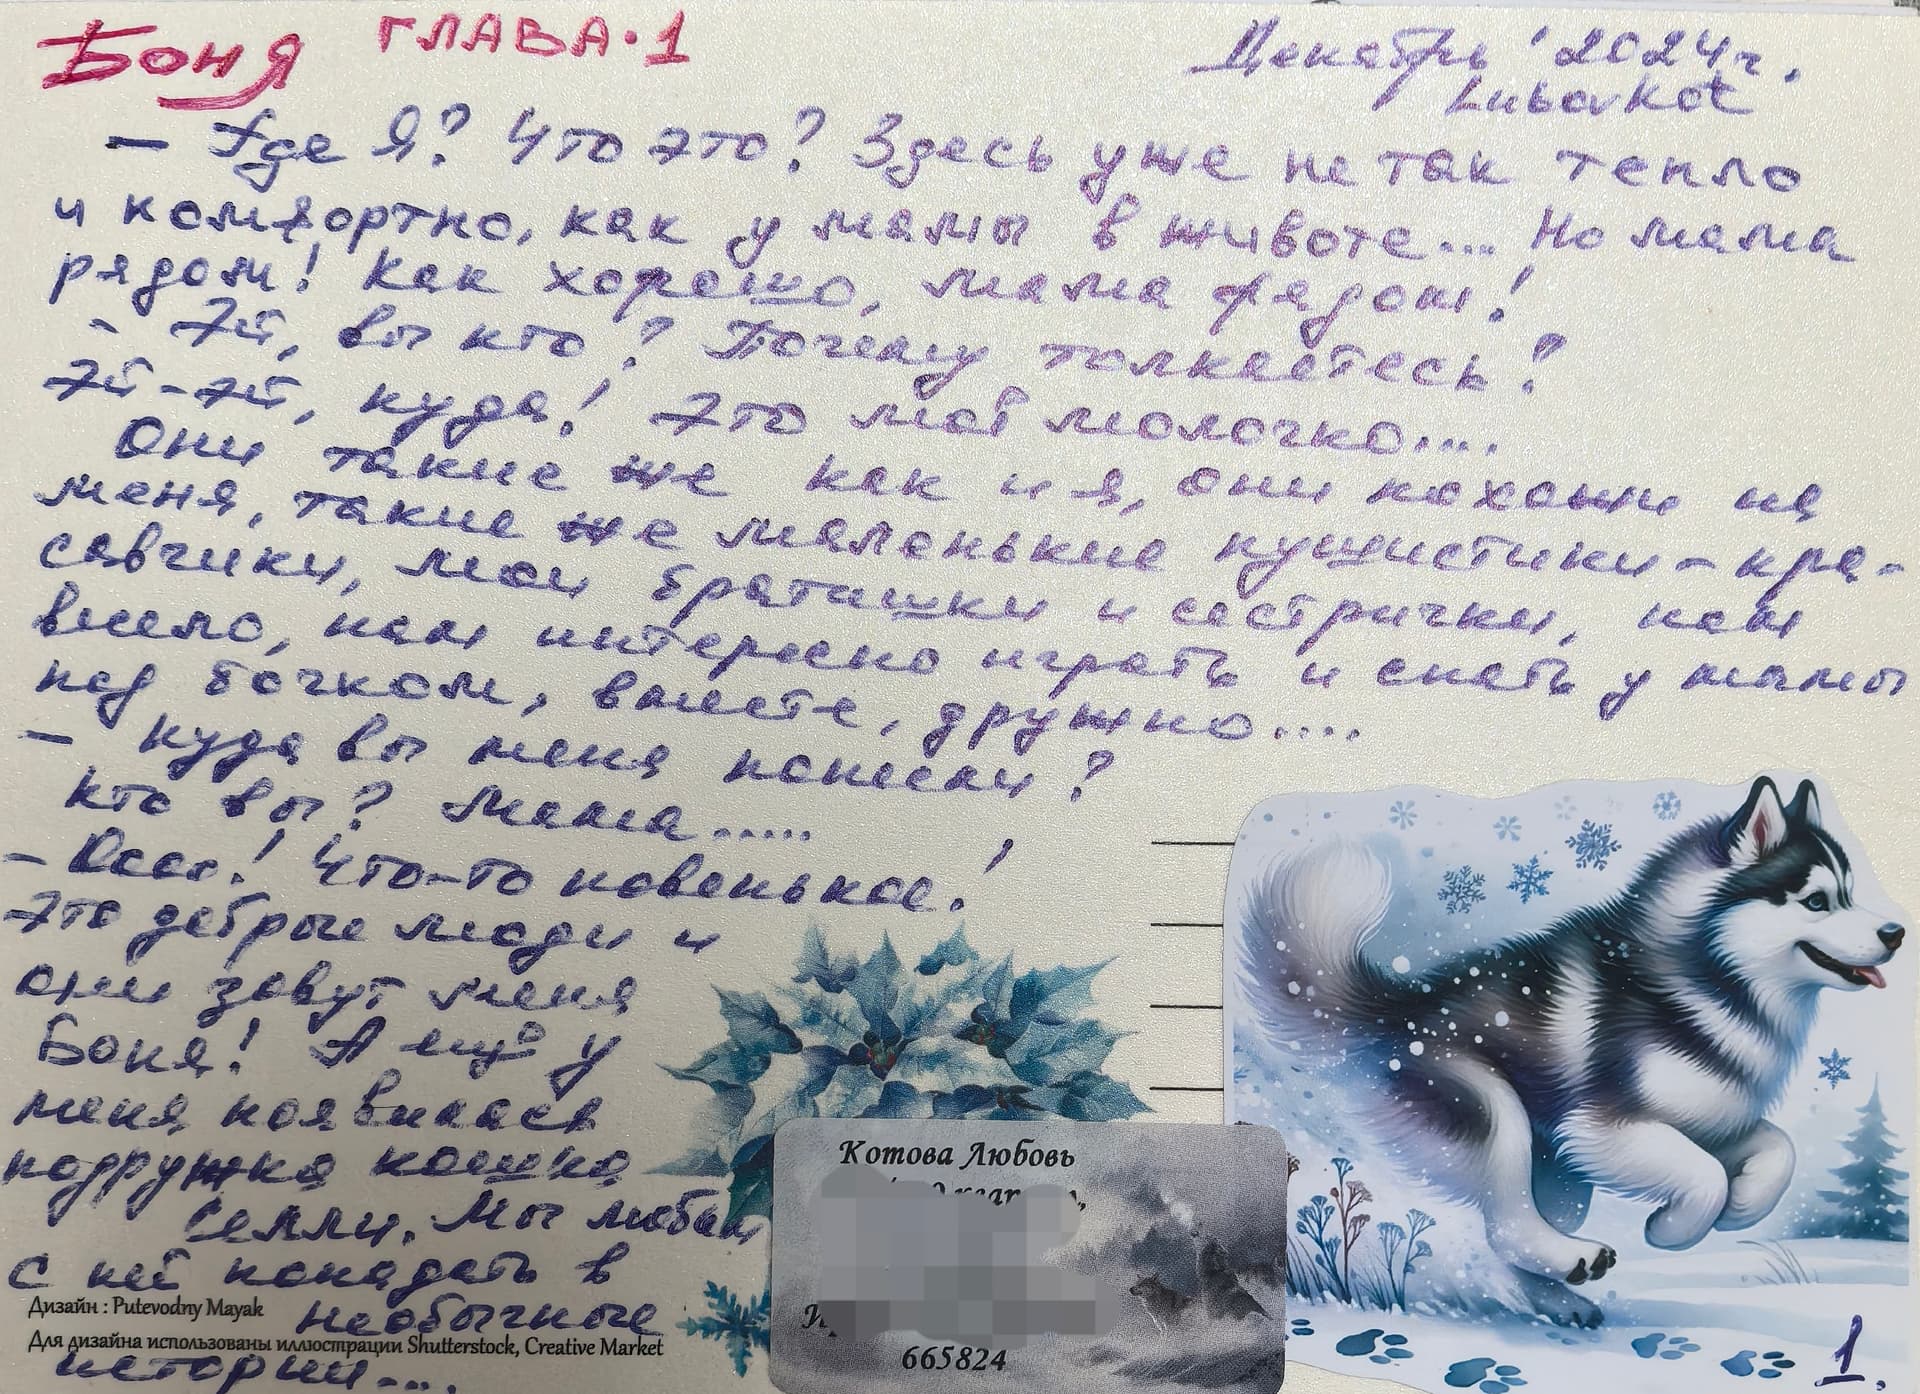 Боня ГЛАВА·1
Декабрь '2024г.
Lubovkot
— Где Я? Что это? Здесь уже не так тепло
и комфортно, как у мамы в животе... Но мама
рядом! Как хорошо, мама рядом!
- Эй, вы кто? Почему толкаетесь?
Эй-эй, куда! Это моё молочко....
Они такие же как и я, они похожи на
меня, такие же маленькие пушистики-кра-
савчики, мои братишки и сестрички, нам
весело, нам интересно играть и спать у мамы
под бочком, вместе, дружно....
- Куда вы меня понесли?
Кто вы? Мама.....
- Оооо! Что-то новенькое!
Это добрые люди и
они зовут меня
Боня! А ещё у
меня появилась
подружка кошка
Селли. Мы любим
с ней попадать в
необычные
истории....
Дизайн : Putevodny Mayak
Для дизайна использованы иллюстрации Shutterstock, Creative Market
Котова Любовь
665824
1.